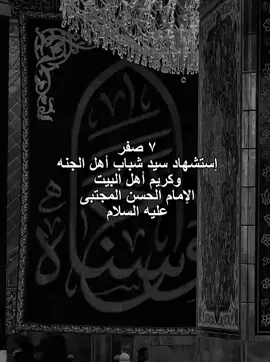 ٧ صفر
إستشهاد سيد شباب أهل الجنه
وكريم أهل البيت
الإمام الحسن المجتبى
عليه السلام